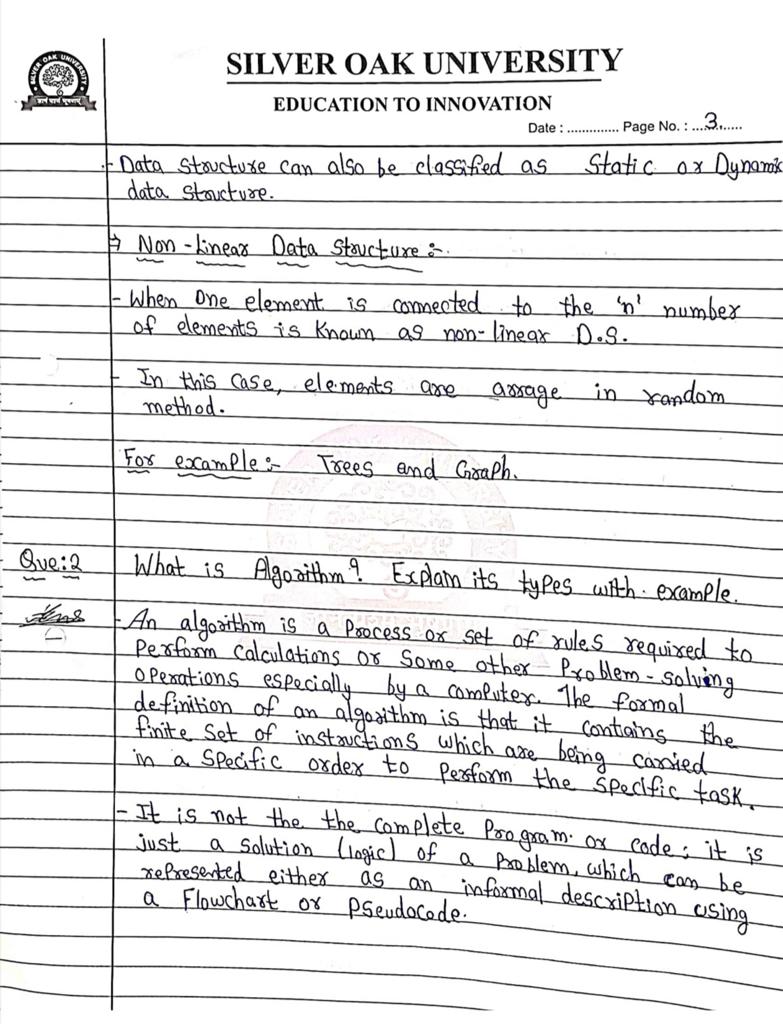 SILVER OAK UNIVERSITY
SILVER OAK UNIVERSITY
EDUCATION TO INNOVATION
Date : .............. Page No. : ...3......
- Data Structure can also be classified as Static or Dynamic
data structure.
⇒ Non-Linear Data Structure :-
- When One element is connected to the 'n' number
of elements is Known as non-linear D.S.
- In this case, elements are arrage in random
method.
For example :- Trees and Graph.
Que:2 What is Algorithm? Explain its types with example.
Ans - An algorithm is a process or set of rules required to
Perform calculations or Some other Problem-solving
operations especially by a computer. The formal
definition of an algorithm is that it contains the
finite set of instructions which are being carried
in a specific order to perform the specific task.
- It is not the the complete Program or code; it is
just a solution (logic) of a problem, which can be
represented either as an informal description using
a Flowchart or Pseudocode.